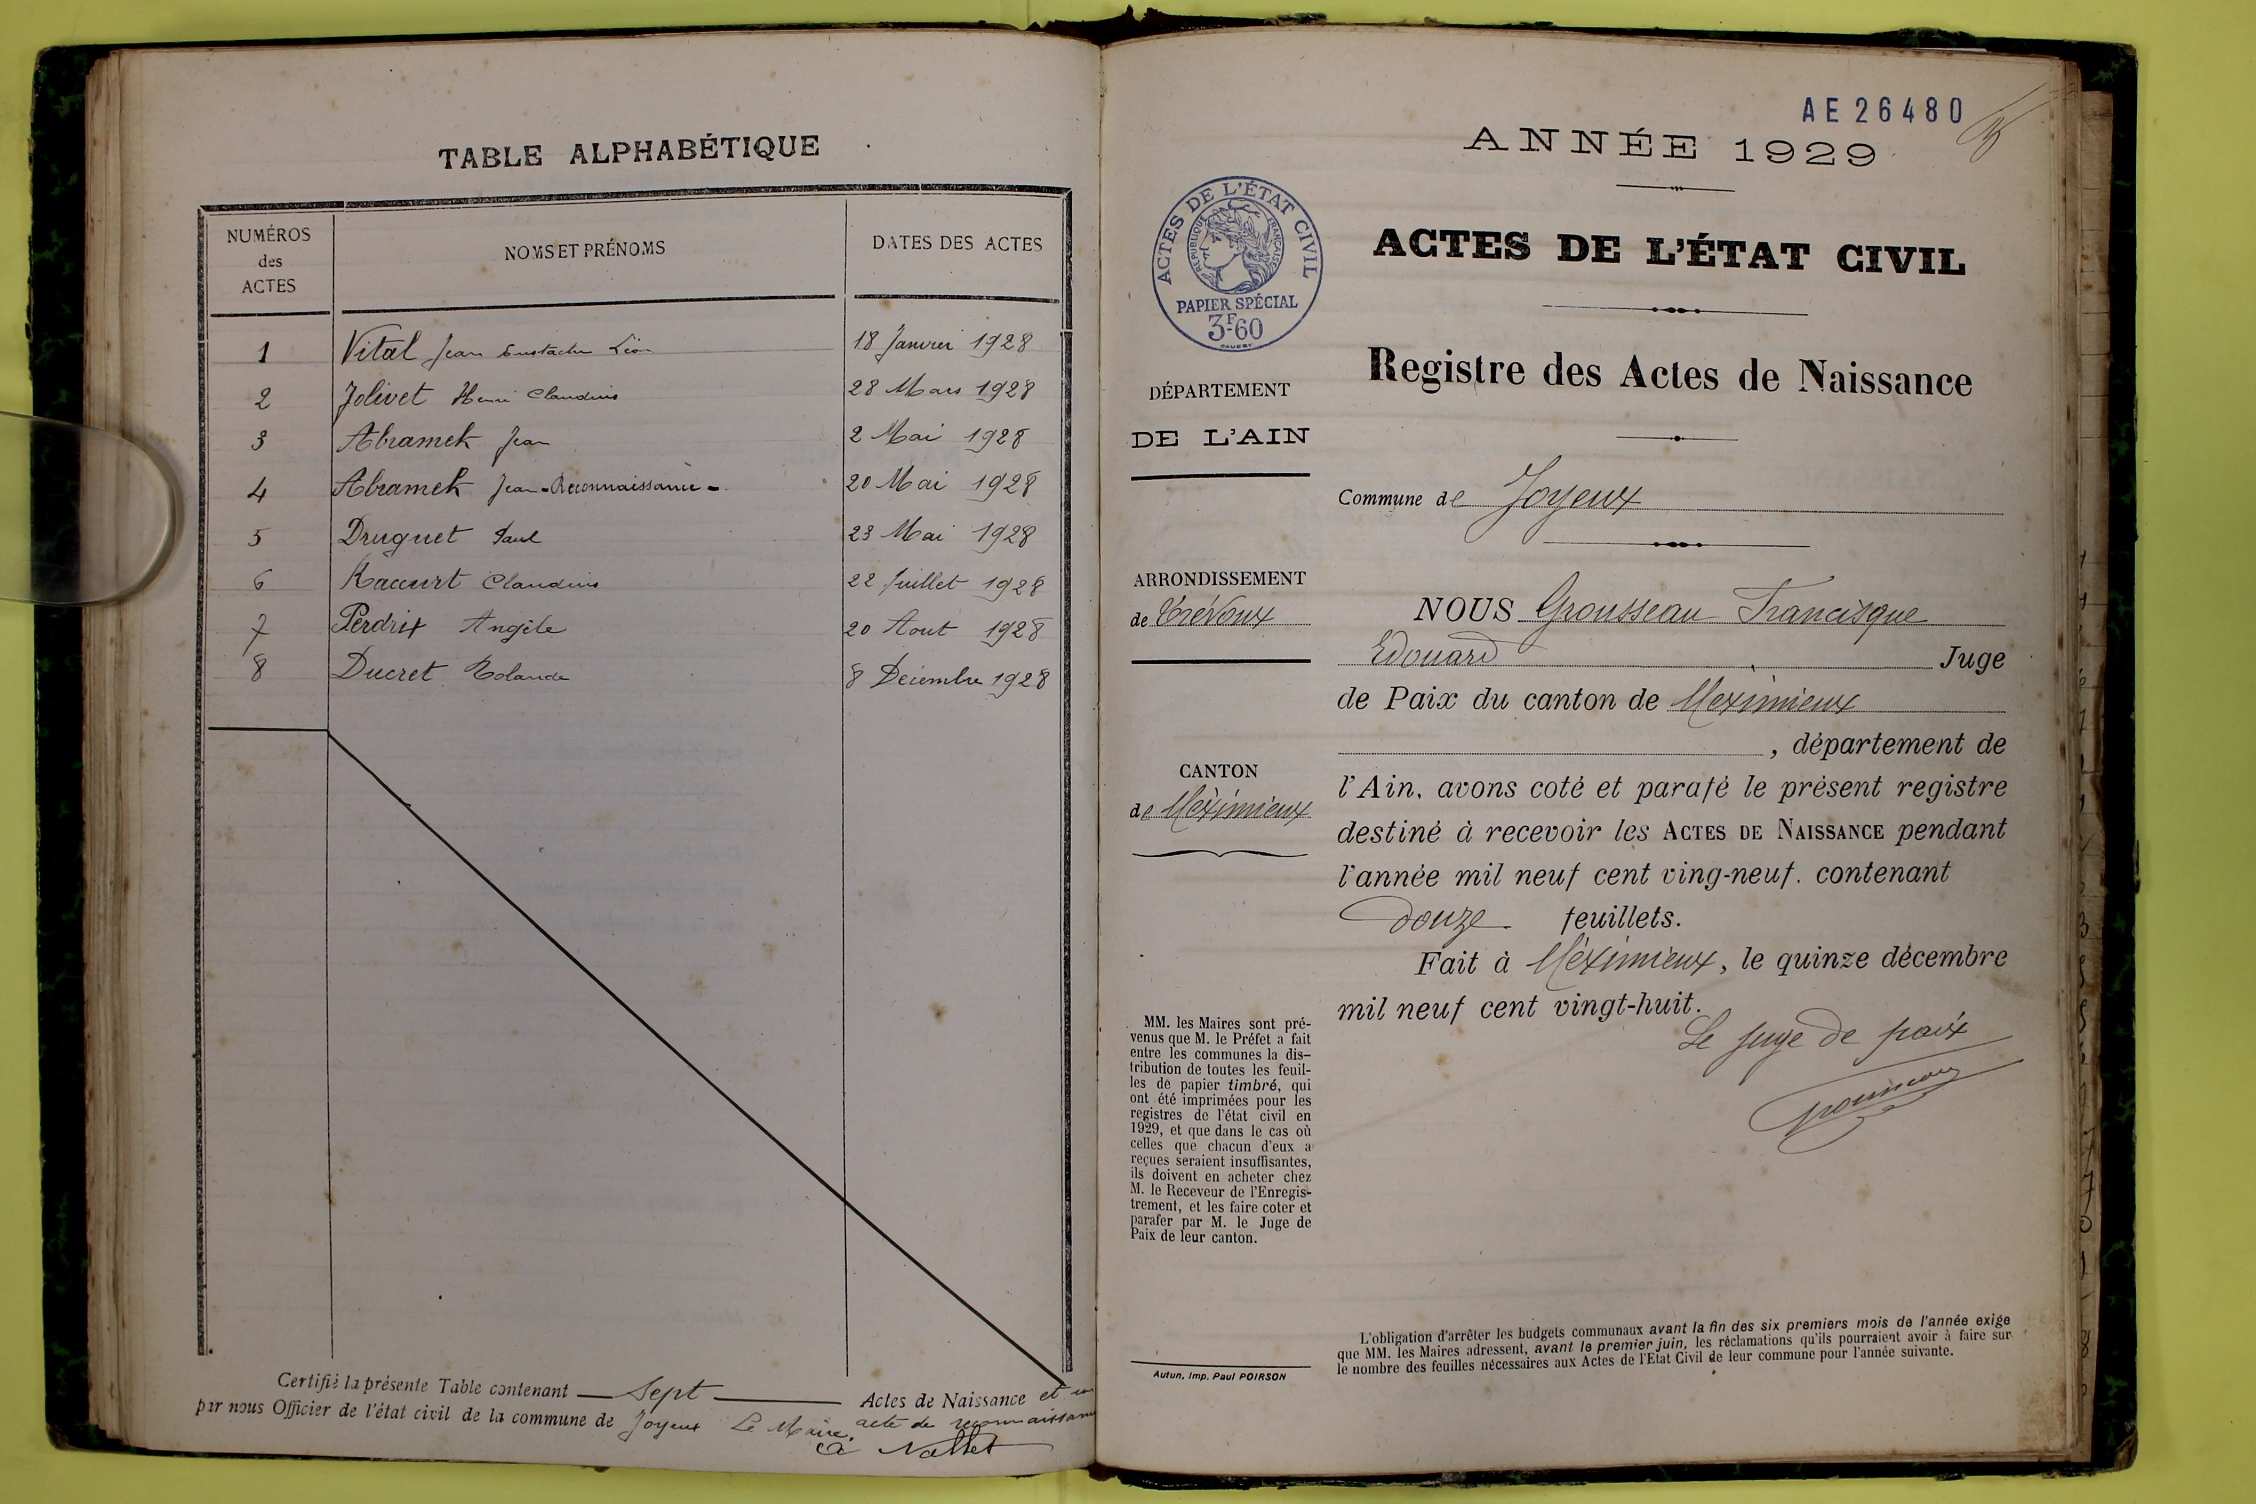 TABLE ALPHABÉTIQUE
NUMÉROS
des
ACTES
NOMS ET PRÉNOMS
DATES DES ACTES
1 Vital Jean Eustache Léon 18 Janvier 1928
2 Jolivet Henri Claudius 28 Mars 1928
3 Abramek Jean 2 Mai 1928
4 Abramek Jean - Reconnaissance - 20 Mai 1928
5 Druguet Paul 23 Mai 1928
6 Raccurt Claudius 22 Juillet 1928
7 Perdrix Angèle 20 Aout 1928
8 Ducret Rolande 8 Décembre 1928
Certifié la présente Table contenant Sept Actes de Naissance et un
par nous Officier de l'état civil de la commune de Joyeux Le Maire, acte de reconnaissance
Nallet
AE 26480
ANNÉE 1929
ACTES DE L'ÉTAT CIVIL
RÉPUBLIQUE FRANÇAISE
PAPIER SPÉCIAL
3F.60
ACTES DE L'ÉTAT CIVIL
Registre des Actes de Naissance
DÉPARTEMENT
DE L'AIN
Commune de Joyeux
ARRONDISSEMENT
de Trévoux
CANTON
de Méximieux
NOUS Grousseau Francisque
Edouard Juge
de Paix du canton de Meximieux
, département de
l'Ain, avons coté et parafé le présent registre
destiné à recevoir les ACTES DE NAISSANCE pendant
l'année mil neuf cent ving-neuf. contenant
douze feuillets.
Fait à Méximieux, le quinze décembre
mil neuf cent vingt-huit.
Le juge de paix
MM. les Maires sont pré-
venus que M. le Préfet a fait
entre les communes la dis-
tribution de toutes les feuil-
les de papier timbré, qui
ont été imprimées pour les
registres de l'état civil en
1929, et que dans le cas où
celles que chacun d'eux a
reçues seraient insuffisantes,
ils doivent en acheter chez
M. le Receveur de l'Enregis-
trement, et les faire coter et
parafer par M. le Juge de
Paix de leur canton.
Autun, Imp. Paul POIRSON
L'obligation d'arrêter les budgets communaux avant la fin des six premiers mois de l'année exige
que MM. les Maires adressent, avant le premier juin, les réclamations qu'ils pourraient avoir à faire sur
le nombre des feuilles nécessaires aux Actes de l'Etat Civil de leur commune pour l'année suivante.